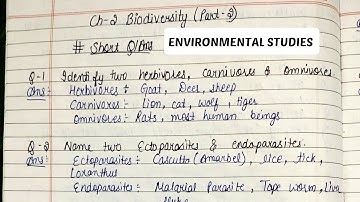 Ch-2 Biodiversity (Part-2)
# Short Q/Ans
ENVIRONMENTAL STUDIES
Q-1 Identify two herbivores, carnivores & omnivores.
Ans:- Herbivores :- Goat, Deer, sheep
Carnivores:- Lion, cat, wolf, tiger
Omnivores:- Rats, most human beings
Q-2 Name two Ectoparasites & endoparasites.
Ans:- Ectoparasites:- Cascutta (Amarbel), lice, tick,
Loranthus
Endoparasites:- Malarial Parasite, Tape worm, Live
fluke